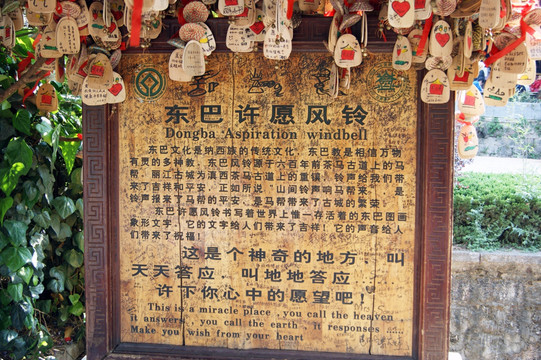 东巴许愿风铃
Dongba Aspiration windbell
东巴文化是纳西族的传统文化，东巴教是相信万物
有灵的多神教。东巴风铃源于六百年前茶马古道上的马
帮，丽江古城为滇西茶马古道上的重镇，铃声给我们带
来了吉祥和平安。正如所说，山间铃声响马帮来，是
铃声报来了马帮的平安，是马帮带来了古城的繁荣
东巴许愿风铃书写着世界上惟一存活着的东巴图画
象形文字，它的文字给人们带来了吉祥！它的声音给人
们带来了祝福！
这是个神奇的地方，叫
天天答应，叫地地答应
许下你心中的愿望吧！
This is a miracle place, you call the heaven
it answers, you call the earth, it responses ...
Make you wish from your heart